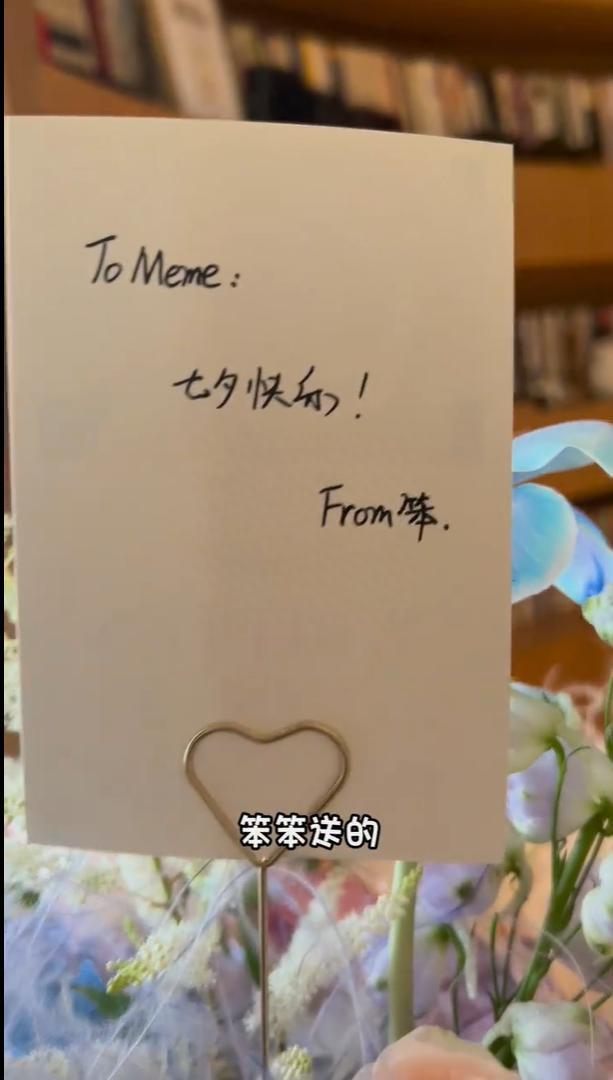 To Meme:
七夕快乐!
From笨.
笨笨送的